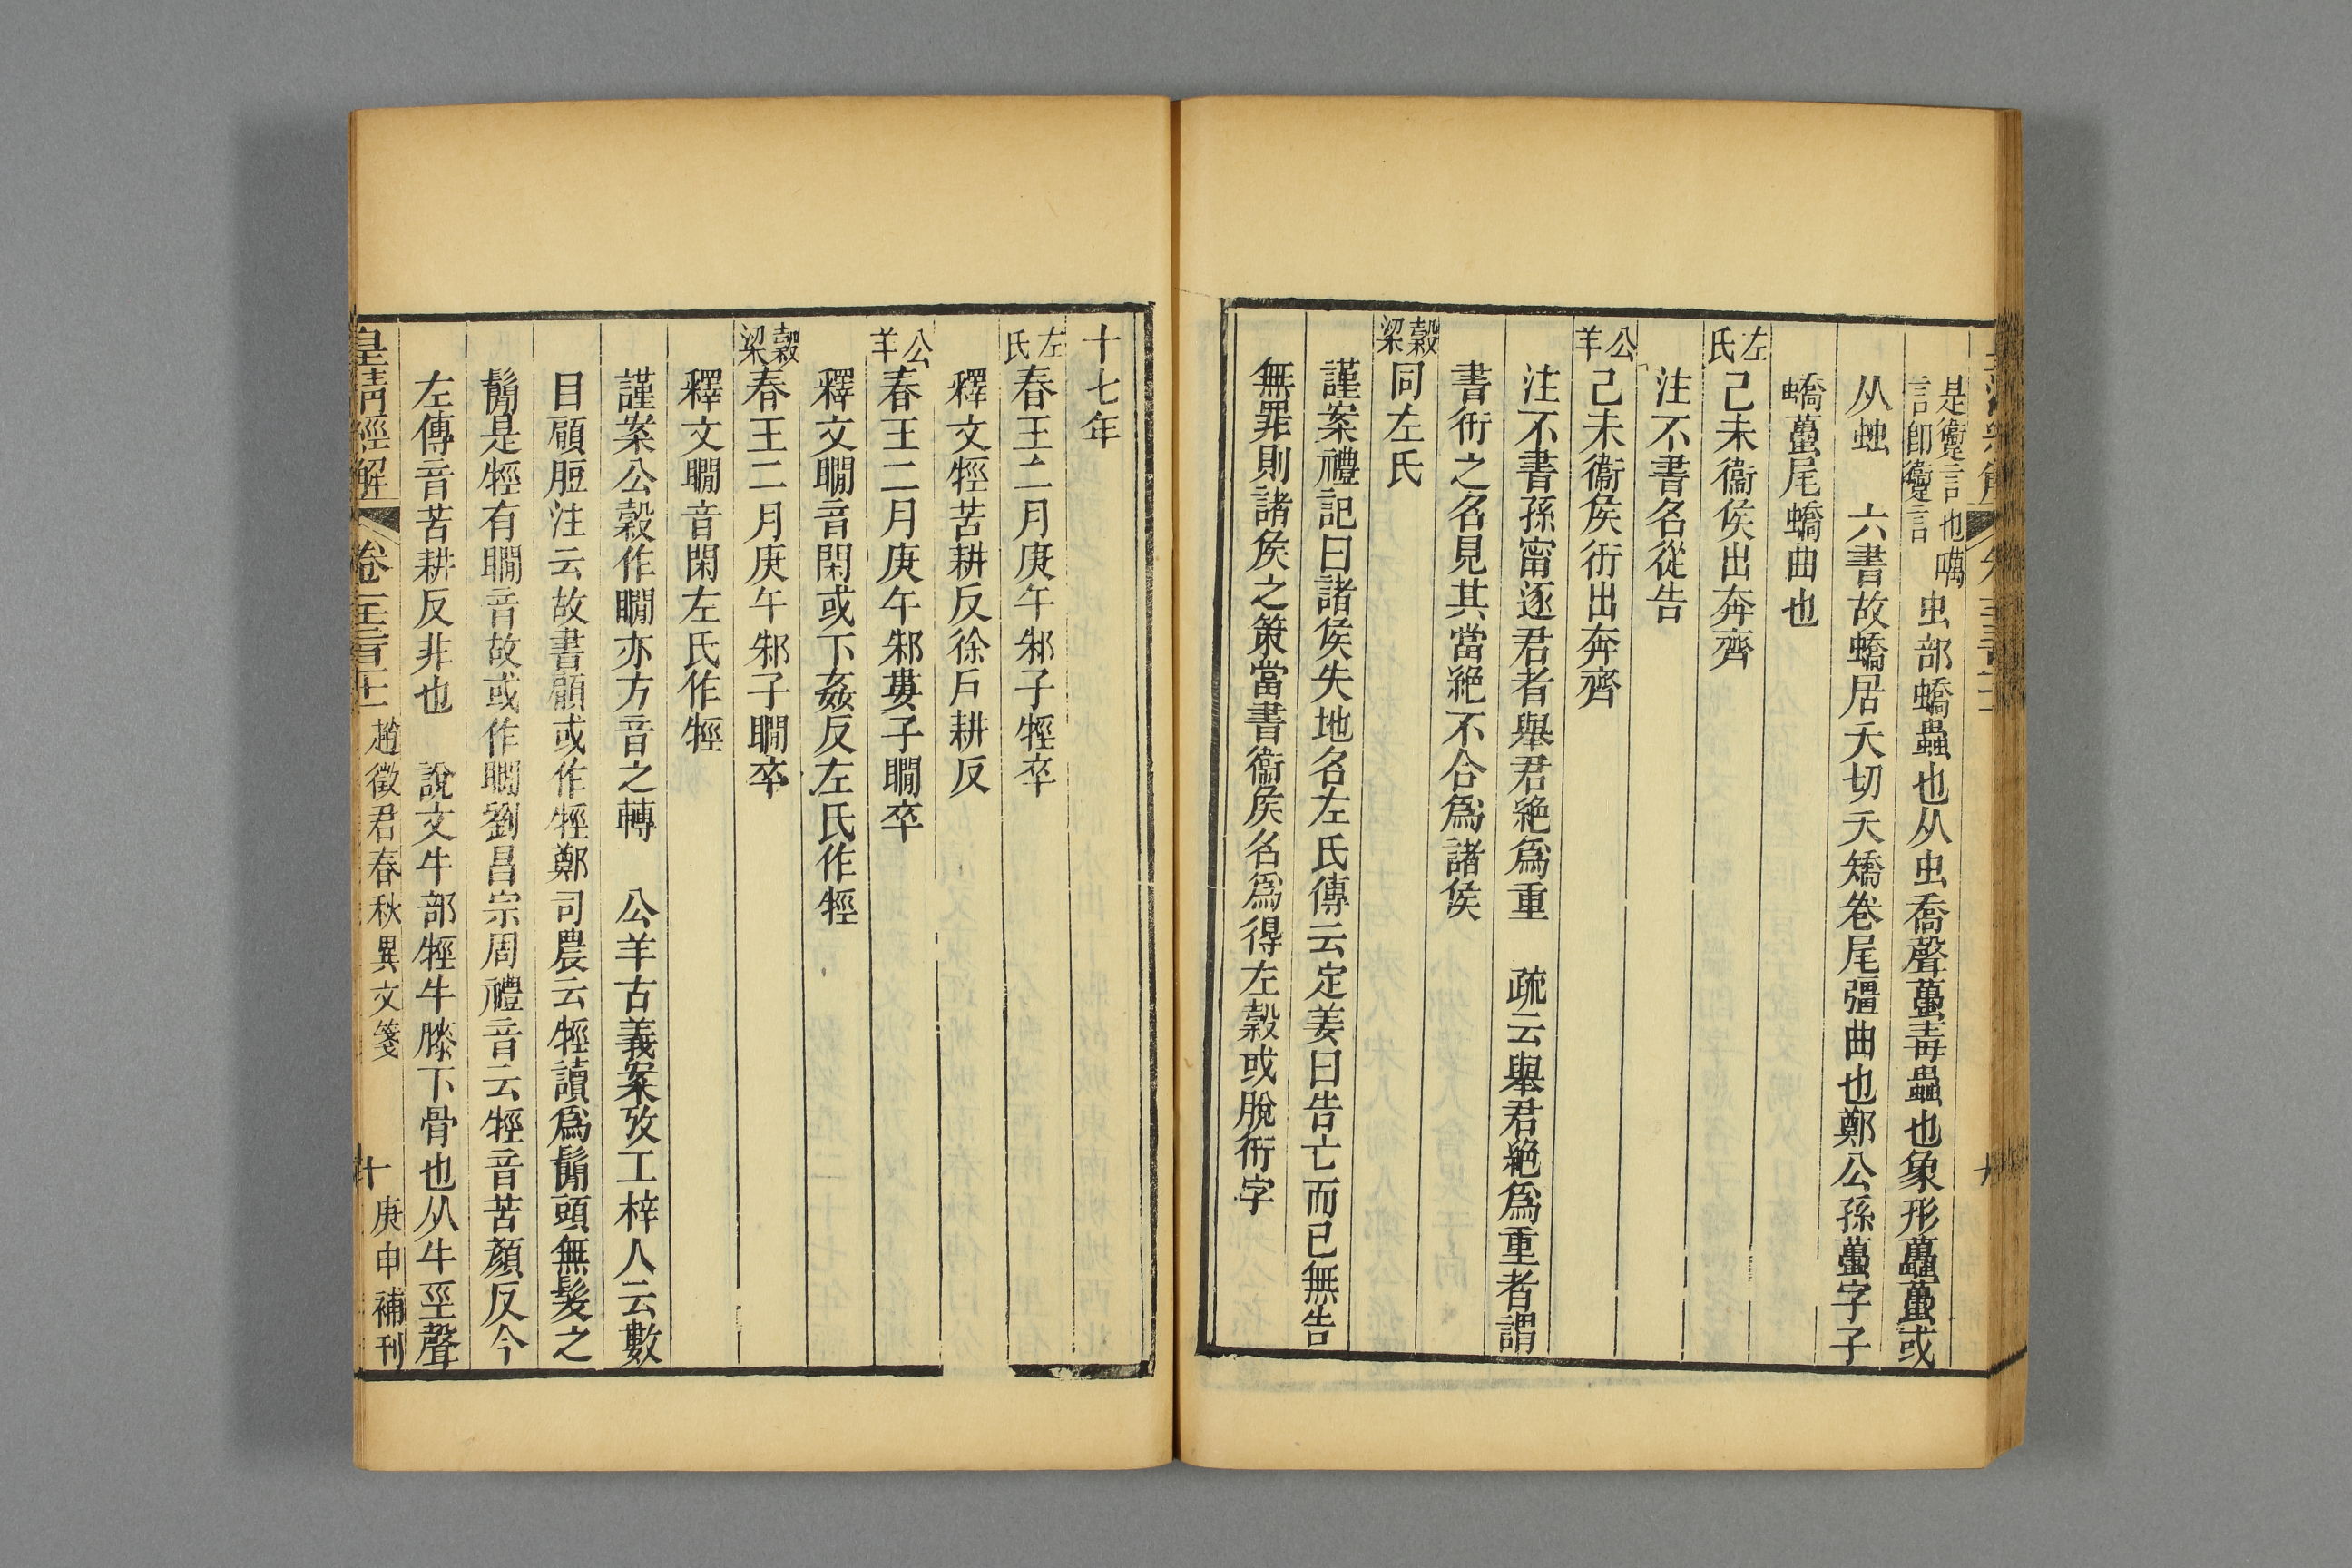 是躗言也噧
言卽躗言
虫部蟜蟲也从虫喬聲蠆毒蟲也象形蠆或
从䖵　六書故蟜居夭切夭矯卷尾彊曲也鄭公孫蠆字子
蟜蠆尾蟜曲也
左氏己未衞侯出奔齊
注不書名從告
公羊己未衞侯衎出奔齊
注不書孫甯逐君者舉君絶爲重　疏云舉君絶爲重者謂
書衎之名見其當絶不合爲諸侯
穀梁同左氏
謹案禮記曰諸侯失地名左氏傳云定姜曰告亡而已無告
無罪則諸侯之策當書衞侯名爲得左穀或脫衎字
十七年
左氏春王二月庚午邾子牼卒
釋文牼苦耕反徐戸耕反
公羊春王二月庚午邾婁子瞷卒
釋文瞷音閑或下姦反左氏作牼
穀梁春王二月庚午邾子瞷卒
釋文瞷音閑左氏作牼
謹案公穀作瞷亦方音之轉　公羊古義案攷工梓人云數
目顧脰注云故書顧或作牼鄭司農云牼讀爲鬜頭無髮之
鬜是牼有瞷音故或作瞷劉昌宗周禮音云牼音苦顏反今
左傳音苦耕反非也　說文牛部牼牛膝下骨也从牛巠聲
皇淸經解
趙徵君春秋異文箋
十
庚申補刊